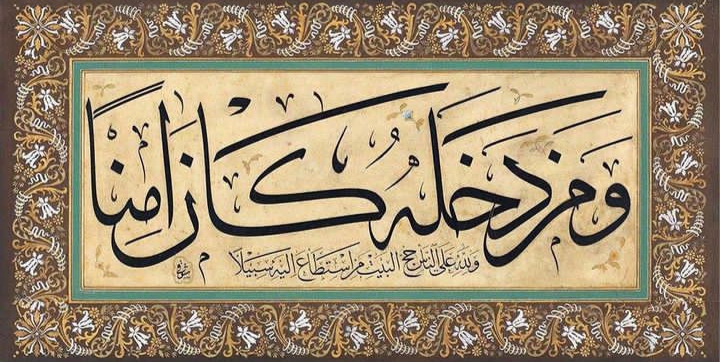 ومن دخله كان امنا
ولله على الناس حج البيت من استطاع اليه سبيلا